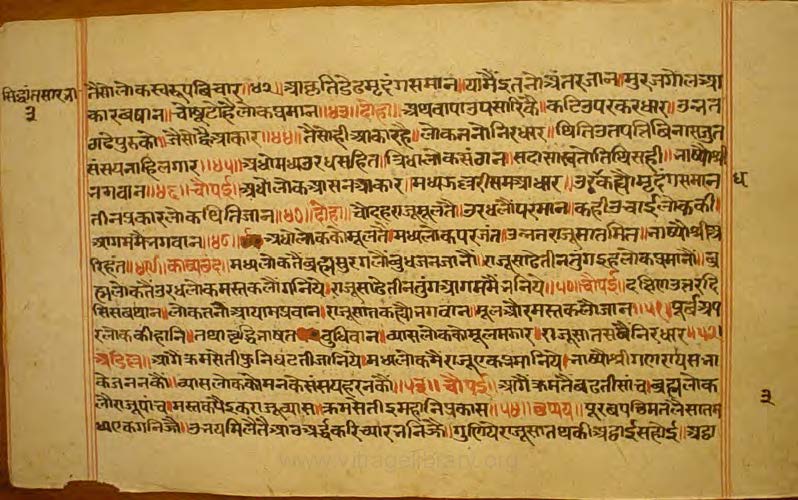 सिद्धांतसार ना
३
तैसौ लोकस्वरूप बिचार॥४२॥ आकृति डेढ मृदंग समान॥ यामैं इतनो अंतर जान॥ मुरज गोल आ
कार बषान॥ चौषूटो है लोक प्रमान॥४३॥ दोहा॥ अथवा पाउ पसारिकै॥ कटि उपर कर धार॥ उन्नत
ठाढे पुरुकौ॥ जैसो ह्वै आकार॥४४॥ तैसोही आकार है॥ लोकतनो निरधार॥ थिति उतपत्ति बिनास जुत
संसय नाहि लगार॥४५॥ अधो मध्य उरध सहित॥ त्रिधा लोक संगन॥ सदा सास्वतो तिथि सही॥ भाष्यो श्री
भगवान॥४६॥ चौपई॥ अधोलोक आसन आकार॥ मध्य झल्लरी सम आधार॥ उर्द्ध कह्यौ मृदंग समान
तीन प्रकार लोक थिति जान॥४७॥ दोहा॥ चौदह राजु मूलतै॥ उरध लौ परमान॥ कही उचाई लोककी॥
आगममै भगवान॥४८॥ अधोलोकके मूलतै॥ मध्यलोक परजंत॥ उन्नत राजु सात मित॥ भाष्यो श्री अ
रिहंत॥४९॥ काव्य छंद॥ मध्यलोकतै ब्रह्म सुरग लौ बुधजन जानौं॥ राजू साढे तीन तुंग इह लोक प्रमानौं॥ ब्र
ह्मलोकतैं उरध लोक मस्तक लौं गनिये॥ राजू साढे तीन तुंग आगममैं भनिये॥५०॥ चौपई॥ दक्षिण उत्तर दि
सि सब थान॥ लोकतनौ आयाम प्रवान॥ राजू सात कह्यौ भगवान॥ मूल और मस्तक लौ जान॥५१॥ पूर्व अप
र लोककी हानि॥ तथा वृद्धि भाषत बुधिवान॥ व्यास लोककौ मूल मझार॥ राजू सात सबै निरधार॥५२॥
अडिल्ल॥ आगै क्रमसेती फुनि घटती जानिये॥ मध्यलोकमै राजू एक प्रमानिये॥ भाष्यो श्री गणराय सभा
के जननकौं॥ व्यास लोककौ मनके संसय हरनकौं॥५३॥ चौपई॥ आगै क्रमतै बढती सांच॥ ब्रह्मलोक
लौ राजू पांच॥ मस्तकपै इक राजू व्यास॥ क्रमसेती इम हानि प्रकास॥५४॥ छप्पय॥ पूरब पछिम तलै सात म
ध्य एक गनिज्जै॥ उभय मिलैतै आठ अर्द्ध करि च्यार भनिज्जै॥ गुणिये राजू सातथकी अट्ठाईस होई॥ अट्ठा
ध
३
www.vitragelibrary.org